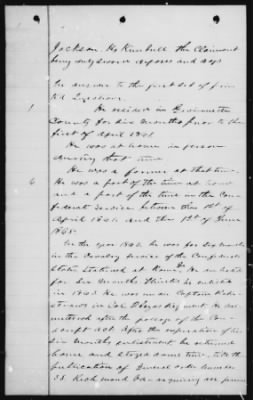 Jackson H. Kimball the Claimant
being duly sworn deposes and says
In answer to the first set of prin
ted Questions
1 He resided in Gwinnette
County for six months prior to the
first of April 1861
He was at home in person
during that time
He was a farmer at that time.
6 He was a part of the time at home
and a part of the time in the Con
federate service between the 1st of
April 1861 and the 1st of June
1865.
In the year 186 he was for six months
in the Cavalry service of the Confederate
States stationed at Rome, Ga. He enlisted
for six months thinks he enlisted
in 1863. He was under Captain
He was
mustered after the passage of the Con
script act After the expiration of this
six months enlistment he returned
home and stayed some time, till the
publication of General order Number
Richmond Va. requiring all persons